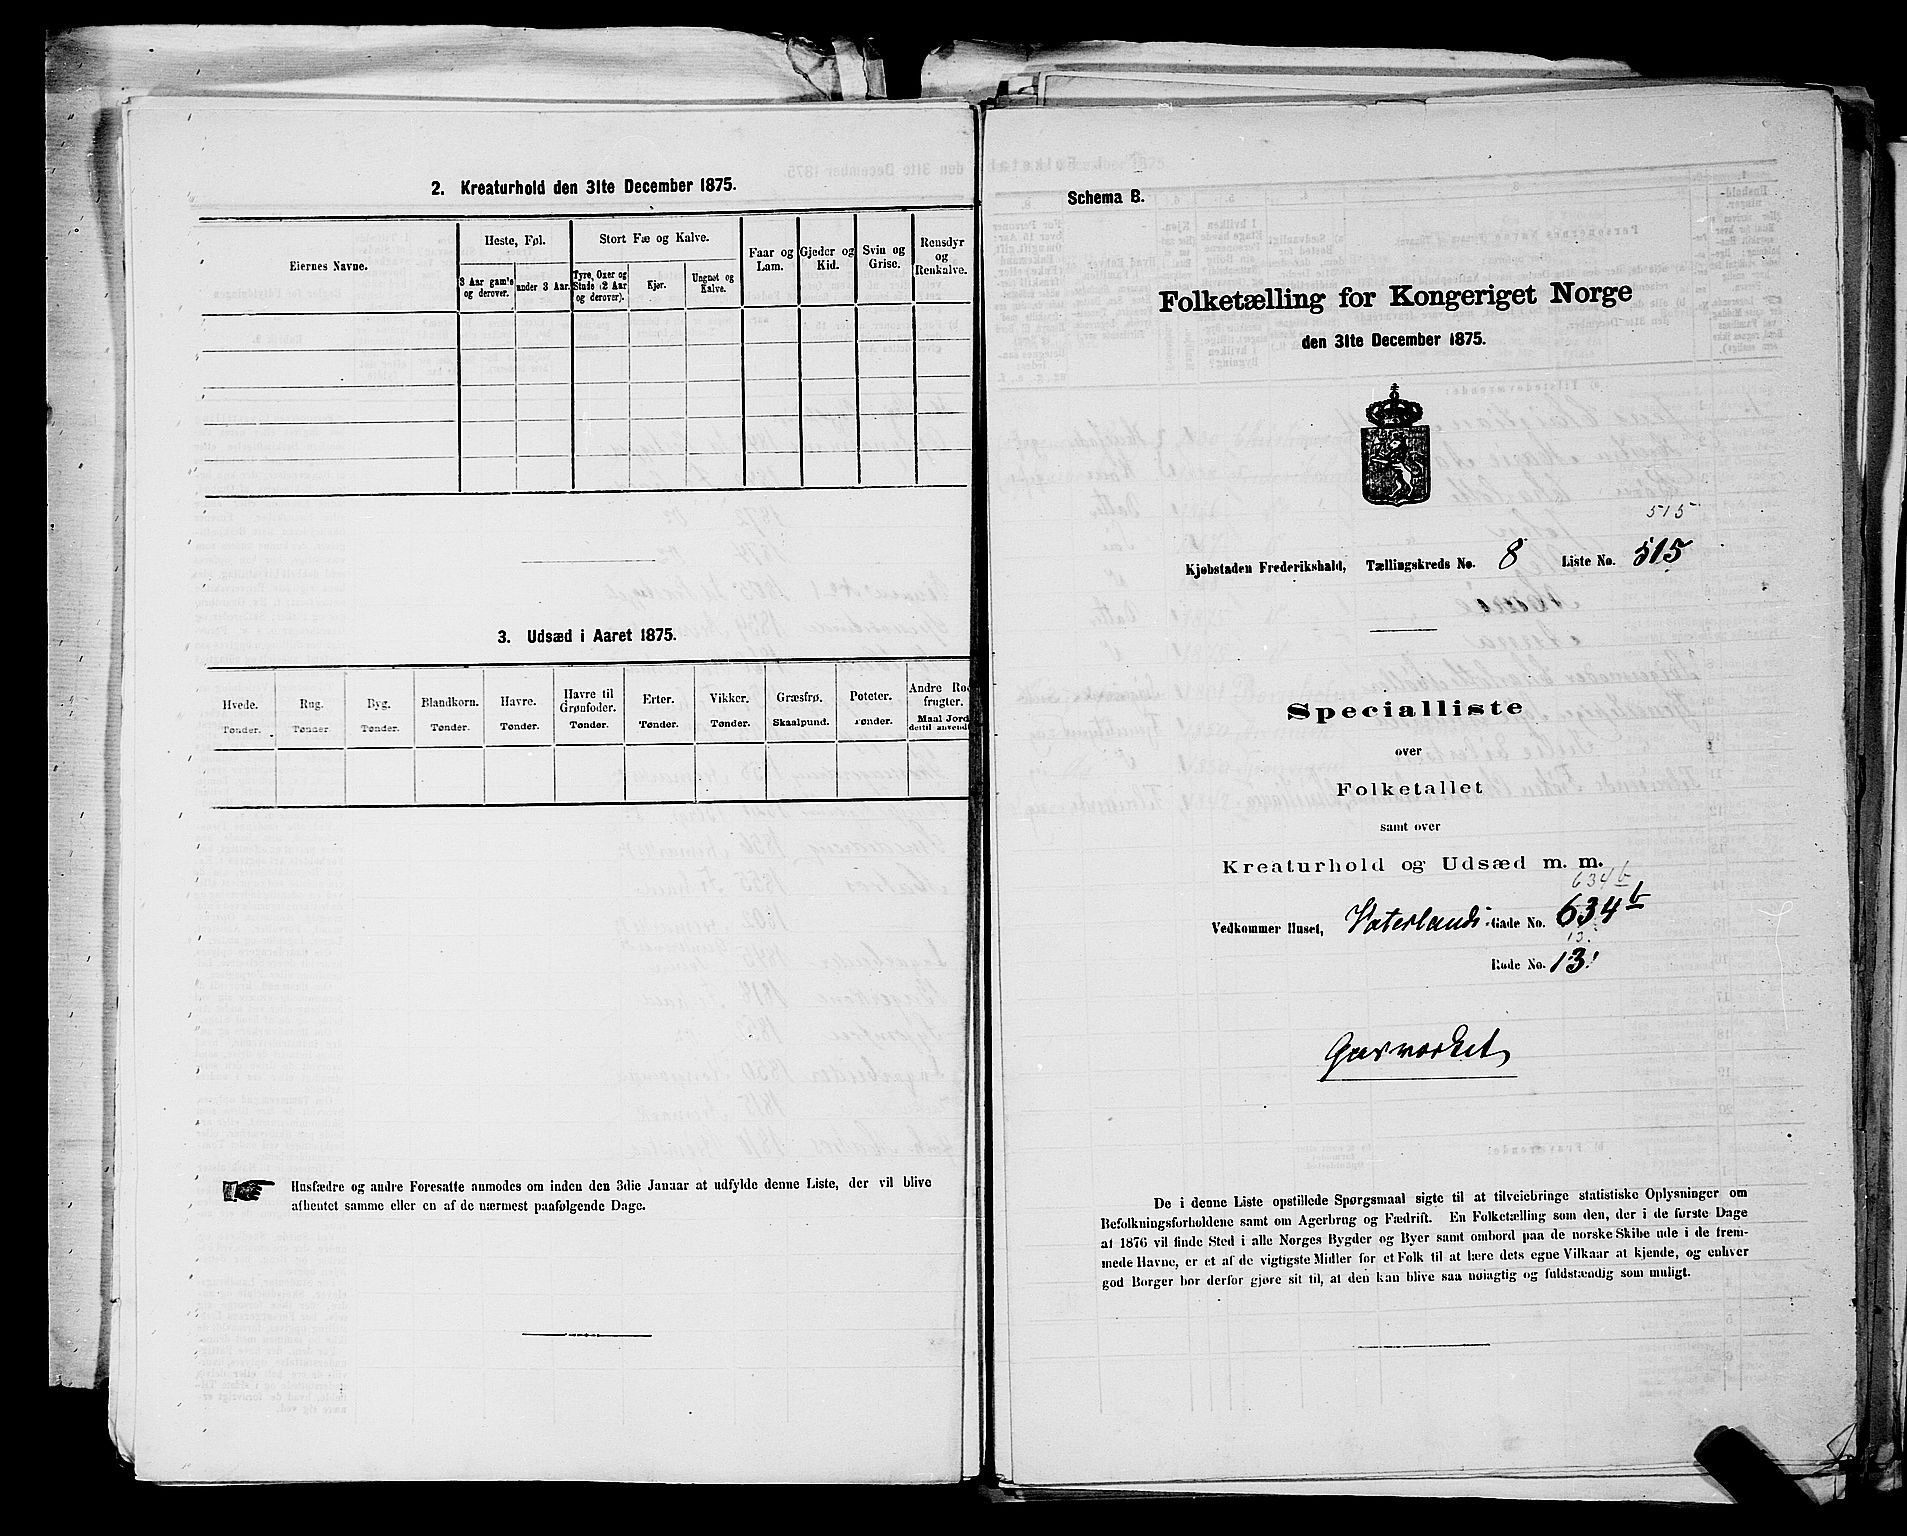 2. Kreaturhold den 31te December 1875.
Eiernes Navne.
Heste, Føl.
3 Aar gam'e og derover.
under 3 Aar.
Stort Fæ og Kalve.
Tyre, Oxer og Stude (2 Aar og derover).
Kjør.
Ungnøt og Kalve.
Faar og Lam.
Gjeder og Kid.
Svin og Grise.
Rensdyr og Renkalve.
3. Udsæd i Aaret 1875.
Hvede. Tønder.
Rug. Tønder.
Byg. Tønder.
Blandkorn. Tønder.
Havre. Tønder.
Havre til Grønfoder. Tønder.
Erter. Tønder.
Vikker. Tønder.
Græsfrø. Skaalpund.
Poteter. Tønder.
Andre Rod frugter. Maal Jord dertil anvendt
Husfædre og andre Foresatte anmodes om inden den 3die Januar at udfylde denne Liste, der vil blive
afhentet samme eller en af de nærmest paafølgende Dage.
Schema B.
Folketælling for Kongeriget Norge
den 31te December 1875.
515
Kjøbstaden Frederikshald, Tællingskreds No. 8 Liste No. 515
Specialliste
over
Folketallet
samt over
Kreaturhold og Udsæd m. m.
634 b
Vedkommer Huset, Vaterlands Gade No. 634 b
13.
Rode No. 13.
Gasværket
De i denne Liste opstillede Spørgsmaal sigte til at tilveiebringe statistiske Oplysninger om
Befolkningsforholdene samt om Agerbrug og Fædrift. En Folketælling som den, der i de første Dage
af 1876 vil finde Sted i alle Norges Bygder og Byer samt ombord paa de norske Skibe ude i de frem-
mede Havne, er et af de vigtigste Midler for et Folk til at lære dets egne Vilkaar at kjende, og enhver
god Borger bør derfor gjøre sit til, at den kan blive saa nøiagtig og fuldstændig som muligt.